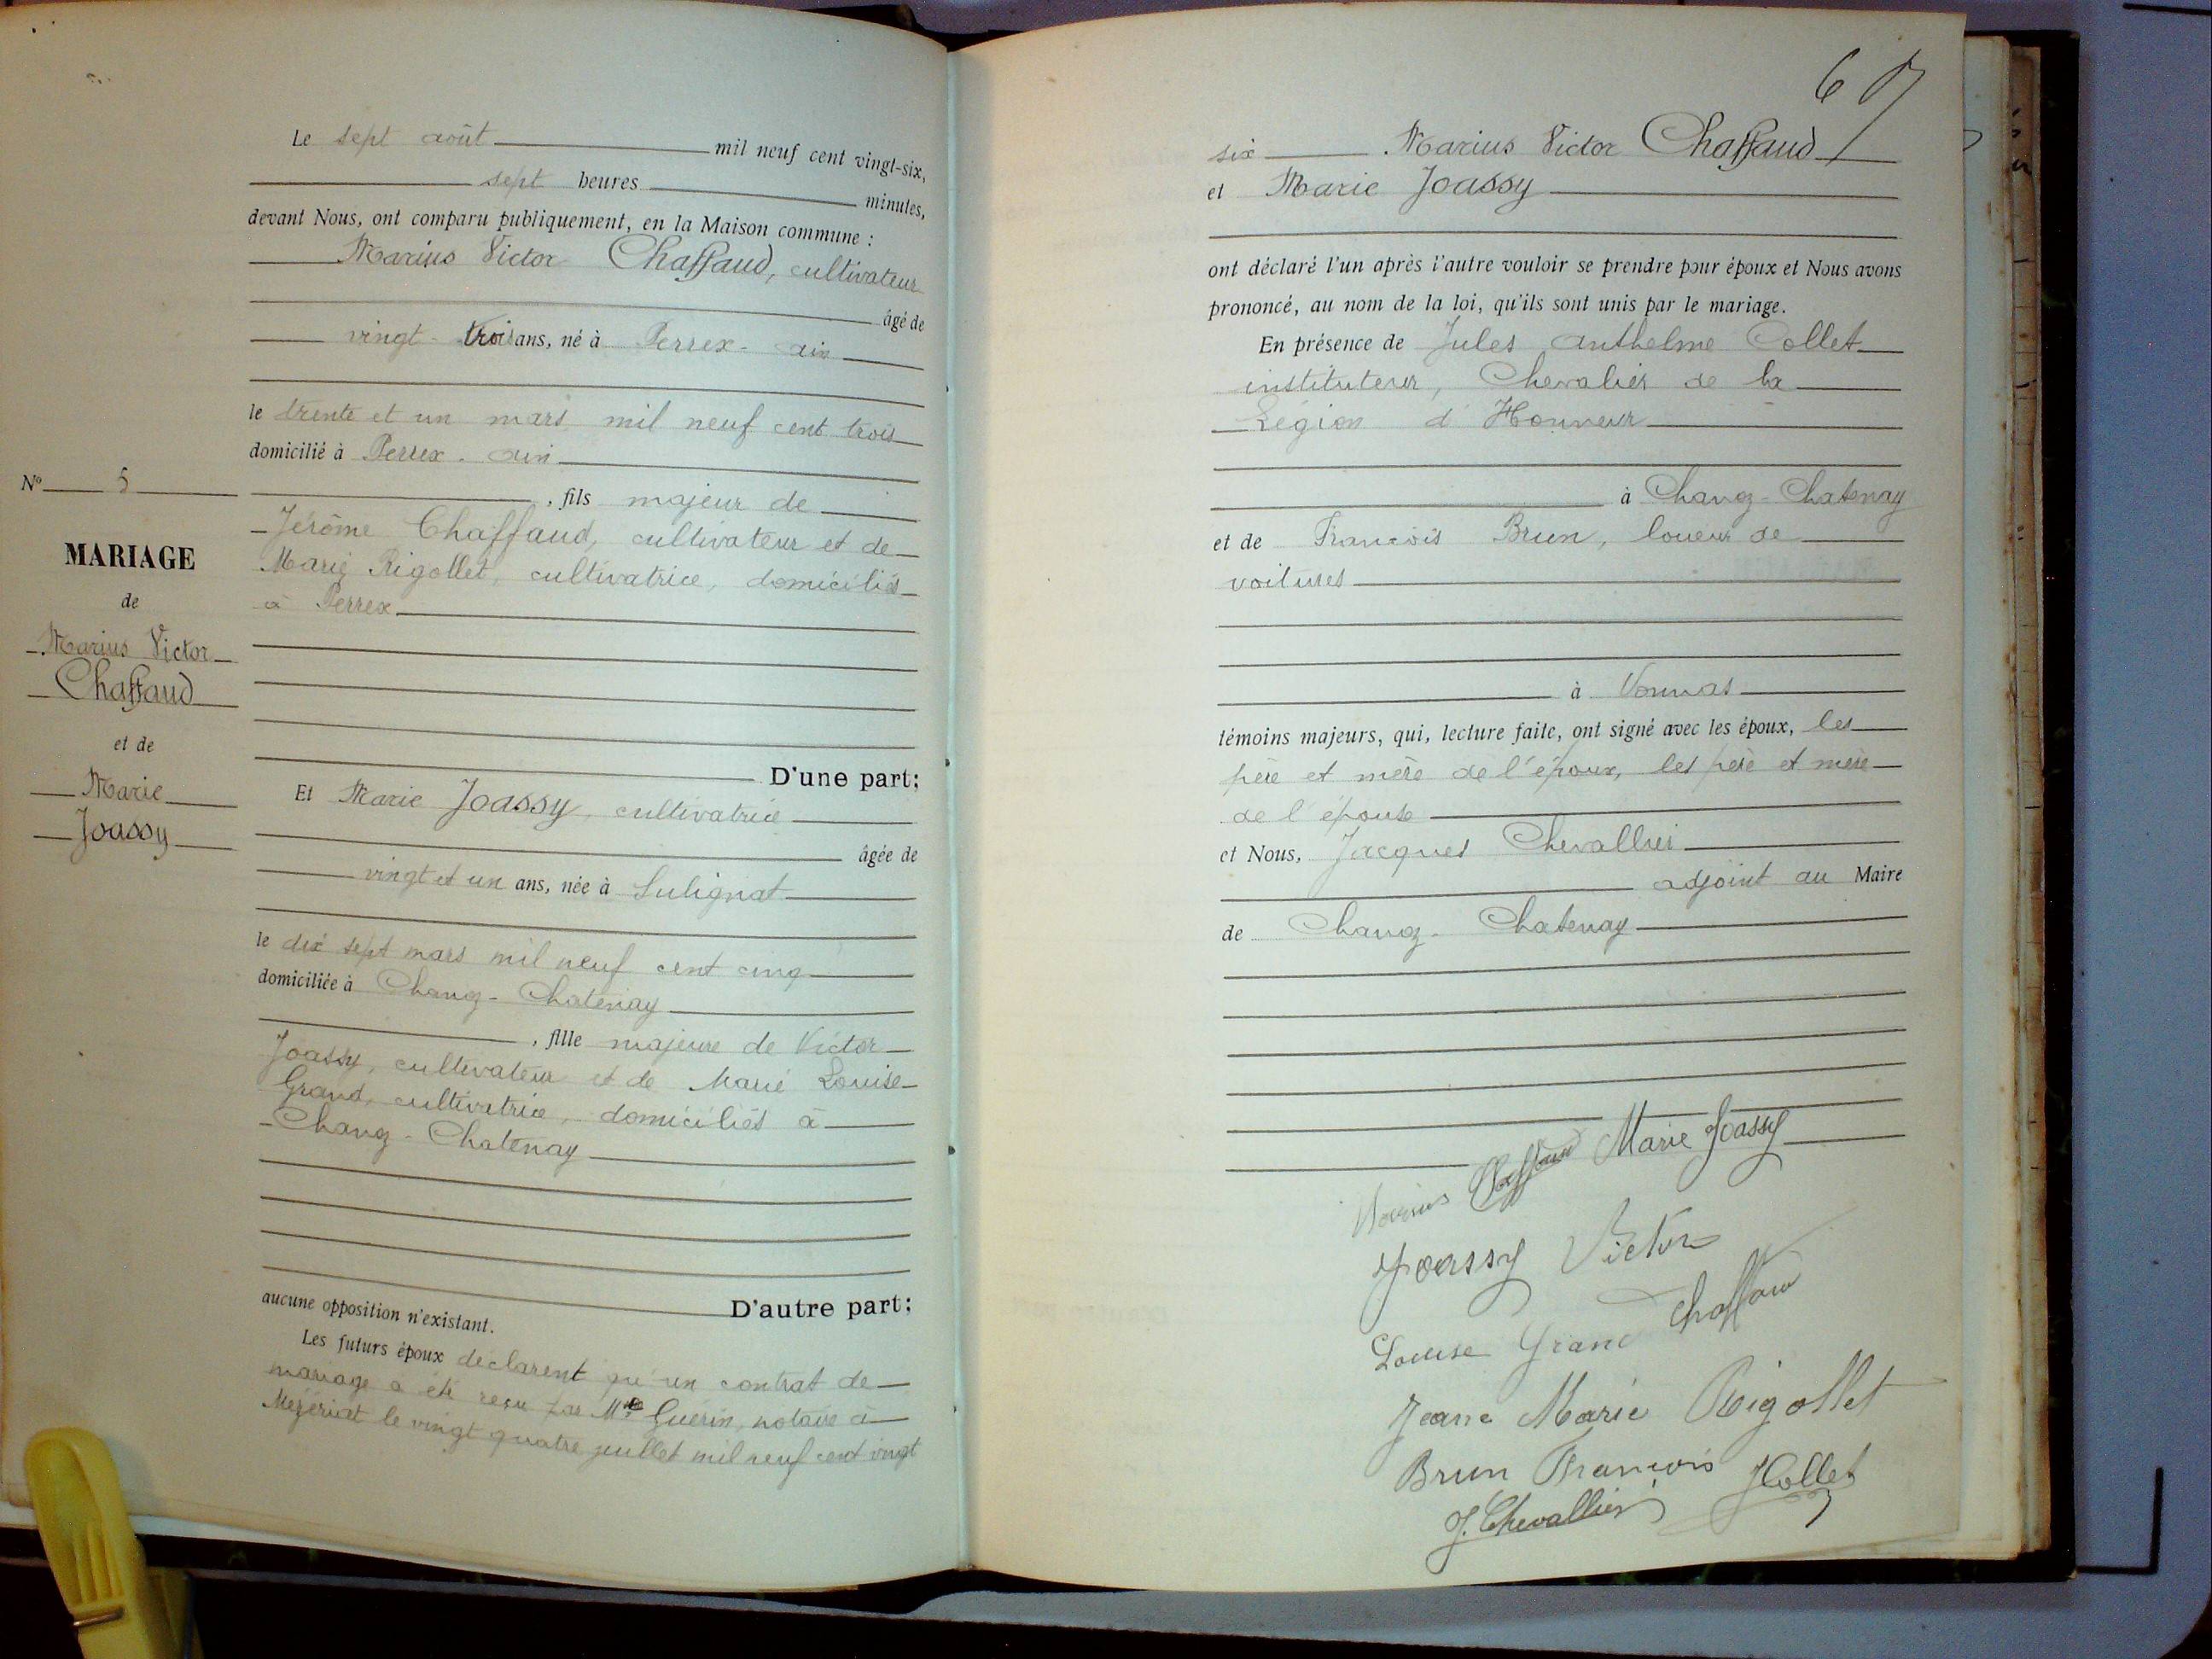 Le sept août mil neuf cent vingt-six,
sept heures minutes,
devant Nous, ont comparu publiquement, en la Maison commune :
Marius Victor Chaffaud, cultivateur
âgé de
vingt-trois ans, né à Perrex-ain
le trente et un mars mil neuf cent trois
domicilié à Perrex-ain
, fils majeur de
Jérôme Chaffaud, cultivateur et de
Marie Rigollet, cultivatrice, domiciliés
à Perrex
D'une part;
Nº 5
MARIAGE
de
Marius Victor
Chaffaud
et de
Marie
Joassy
Et Marie Joassy, cultivatrice
âgée de
vingt et un ans, née à Sulignat
le dix sept mars mil neuf cent cinq
domiciliée à Chanoz-Chatenay
, fille majeure de Victor
Joassy, cultivateur et de Marie Louise
Grand, cultivatrice, domiciliés à
Chanoz-Chatenay
D'autre part;
aucune opposition n'existant.
Les futurs époux déclarent qu'un contrat de
mariage a été reçu par Me Guérin, notaire à
Mézériat le vingt quatre juillet mil neuf cent vingt
67
six Marius Victor Chaffaud
et Marie Joassy
ont déclaré l'un après l'autre vouloir se prendre pour époux et Nous avons
prononcé, au nom de la loi, qu'ils sont unis par le mariage.
En présence de Jules Anthelme Collet
instituteur, Chevalier de la
Légion d'Honneur
à Chanoz-Chatenay
et de François Brun, loueur de
voitures
à Vonnas
témoins majeurs, qui, lecture faite, ont signé avec les époux, les
père et mère de l'époux, les père et mère
de l'épouse
et Nous, Jacques Chevallier
adjoint au Maire
de Chanoz-Chatenay
Marius Chaffaud Marie Joassy
Joassy Victor
Louise Grand Chaffaud
Jeane Marie Rigollet
Brun François JCollet
J. Chevallier